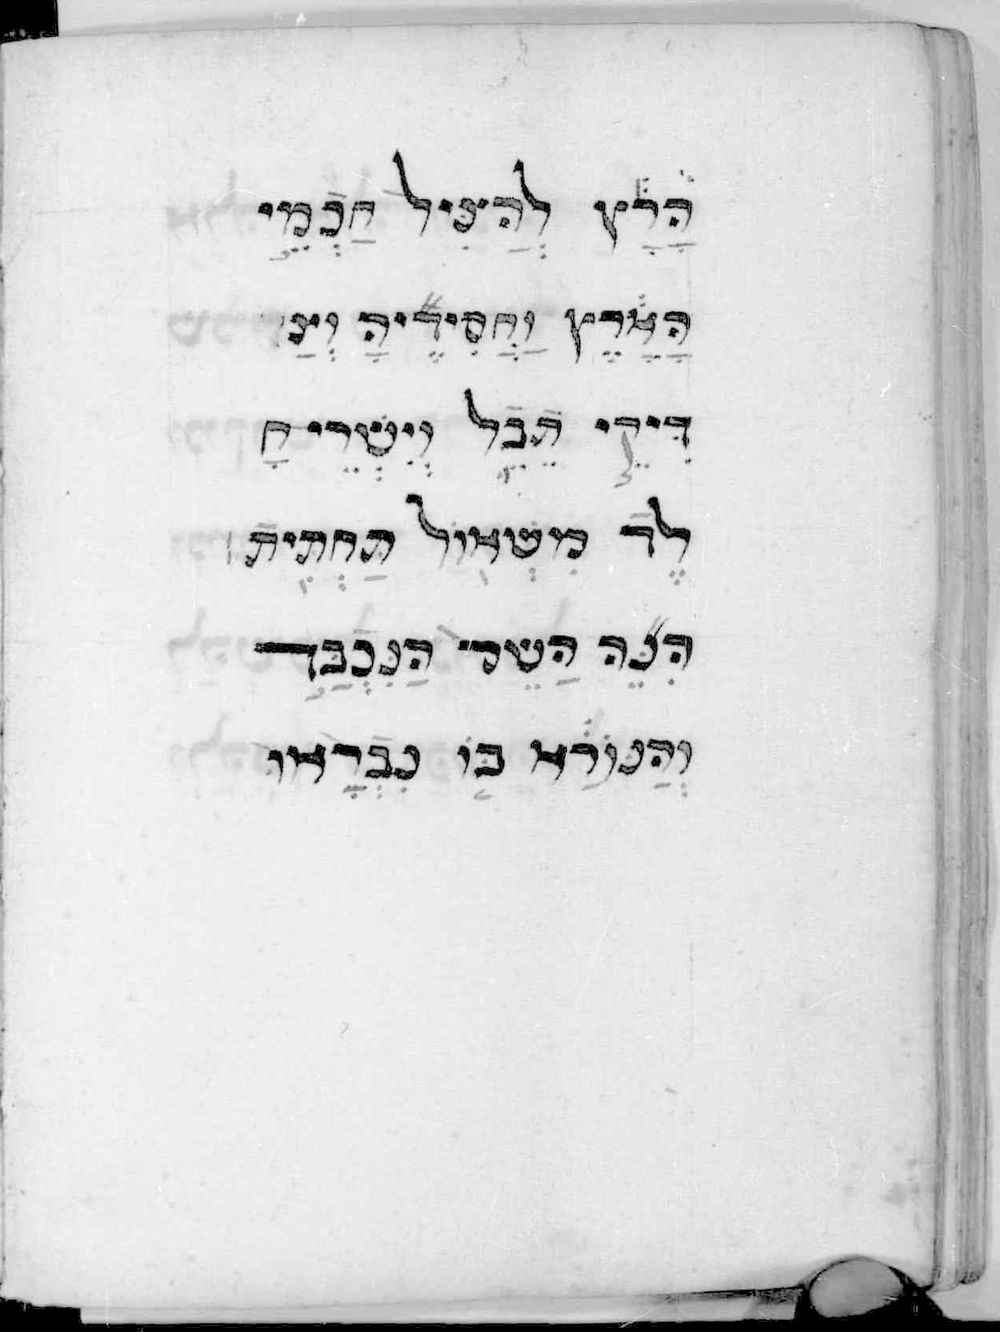 הָרָץ לְהַצִּיל חַכְמֵי
הָאָרֶץ וַחֲסִידֶיהָ וְצַ
דִּיקֵי תֵבֵל וְיִשְׁרֵי חָ
לֶד מִשְּׁאוֹל תַּחְתִּית
הִנֵּה הַשֵּׁם הַנִּכְבַּד
וְהַנּוֹרָא בּוֹ נִבְרָאוּ